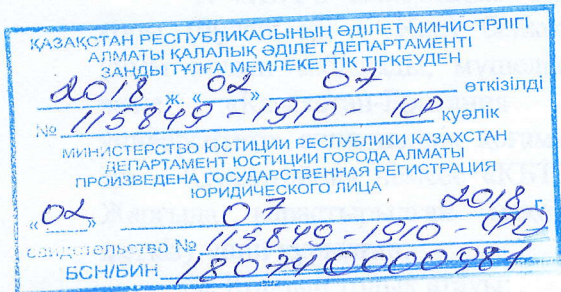 ҚАЗАҚСТАН РЕСПУБЛИКАСЫНЫҢ ӘДІЛЕТ МИНИСТРЛІГІ
АЛМАТЫ ҚАЛАЛЫҚ ӘДІЛЕТ ДЕПАРТАМЕНТІ
ЗАҢДЫ ТҰЛҒА МЕМЛЕКЕТТІК ТІРКЕУДЕН
2018 ж. «02» 07 өткізілді
№ 115849-1910- куәлік
МИНИСТЕРСТВО ЮСТИЦИИ РЕСПУБЛИКИ КАЗАХСТАН
ДЕПАРТАМЕНТ ЮСТИЦИИ ГОРОДА АЛМАТЫ
ПРОИЗВЕДЕНА ГОСУДАРСТВЕННАЯ РЕГИСТРАЦИЯ
ЮРИДИЧЕСКОГО ЛИЦА
«02» 07 2018 г.
свидетельство № 115849-1910-
БСН/БИН 180740000981